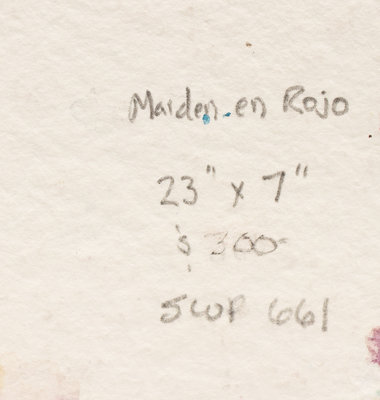 Maiden en Rojo
23" x 7"
$ 300-
661